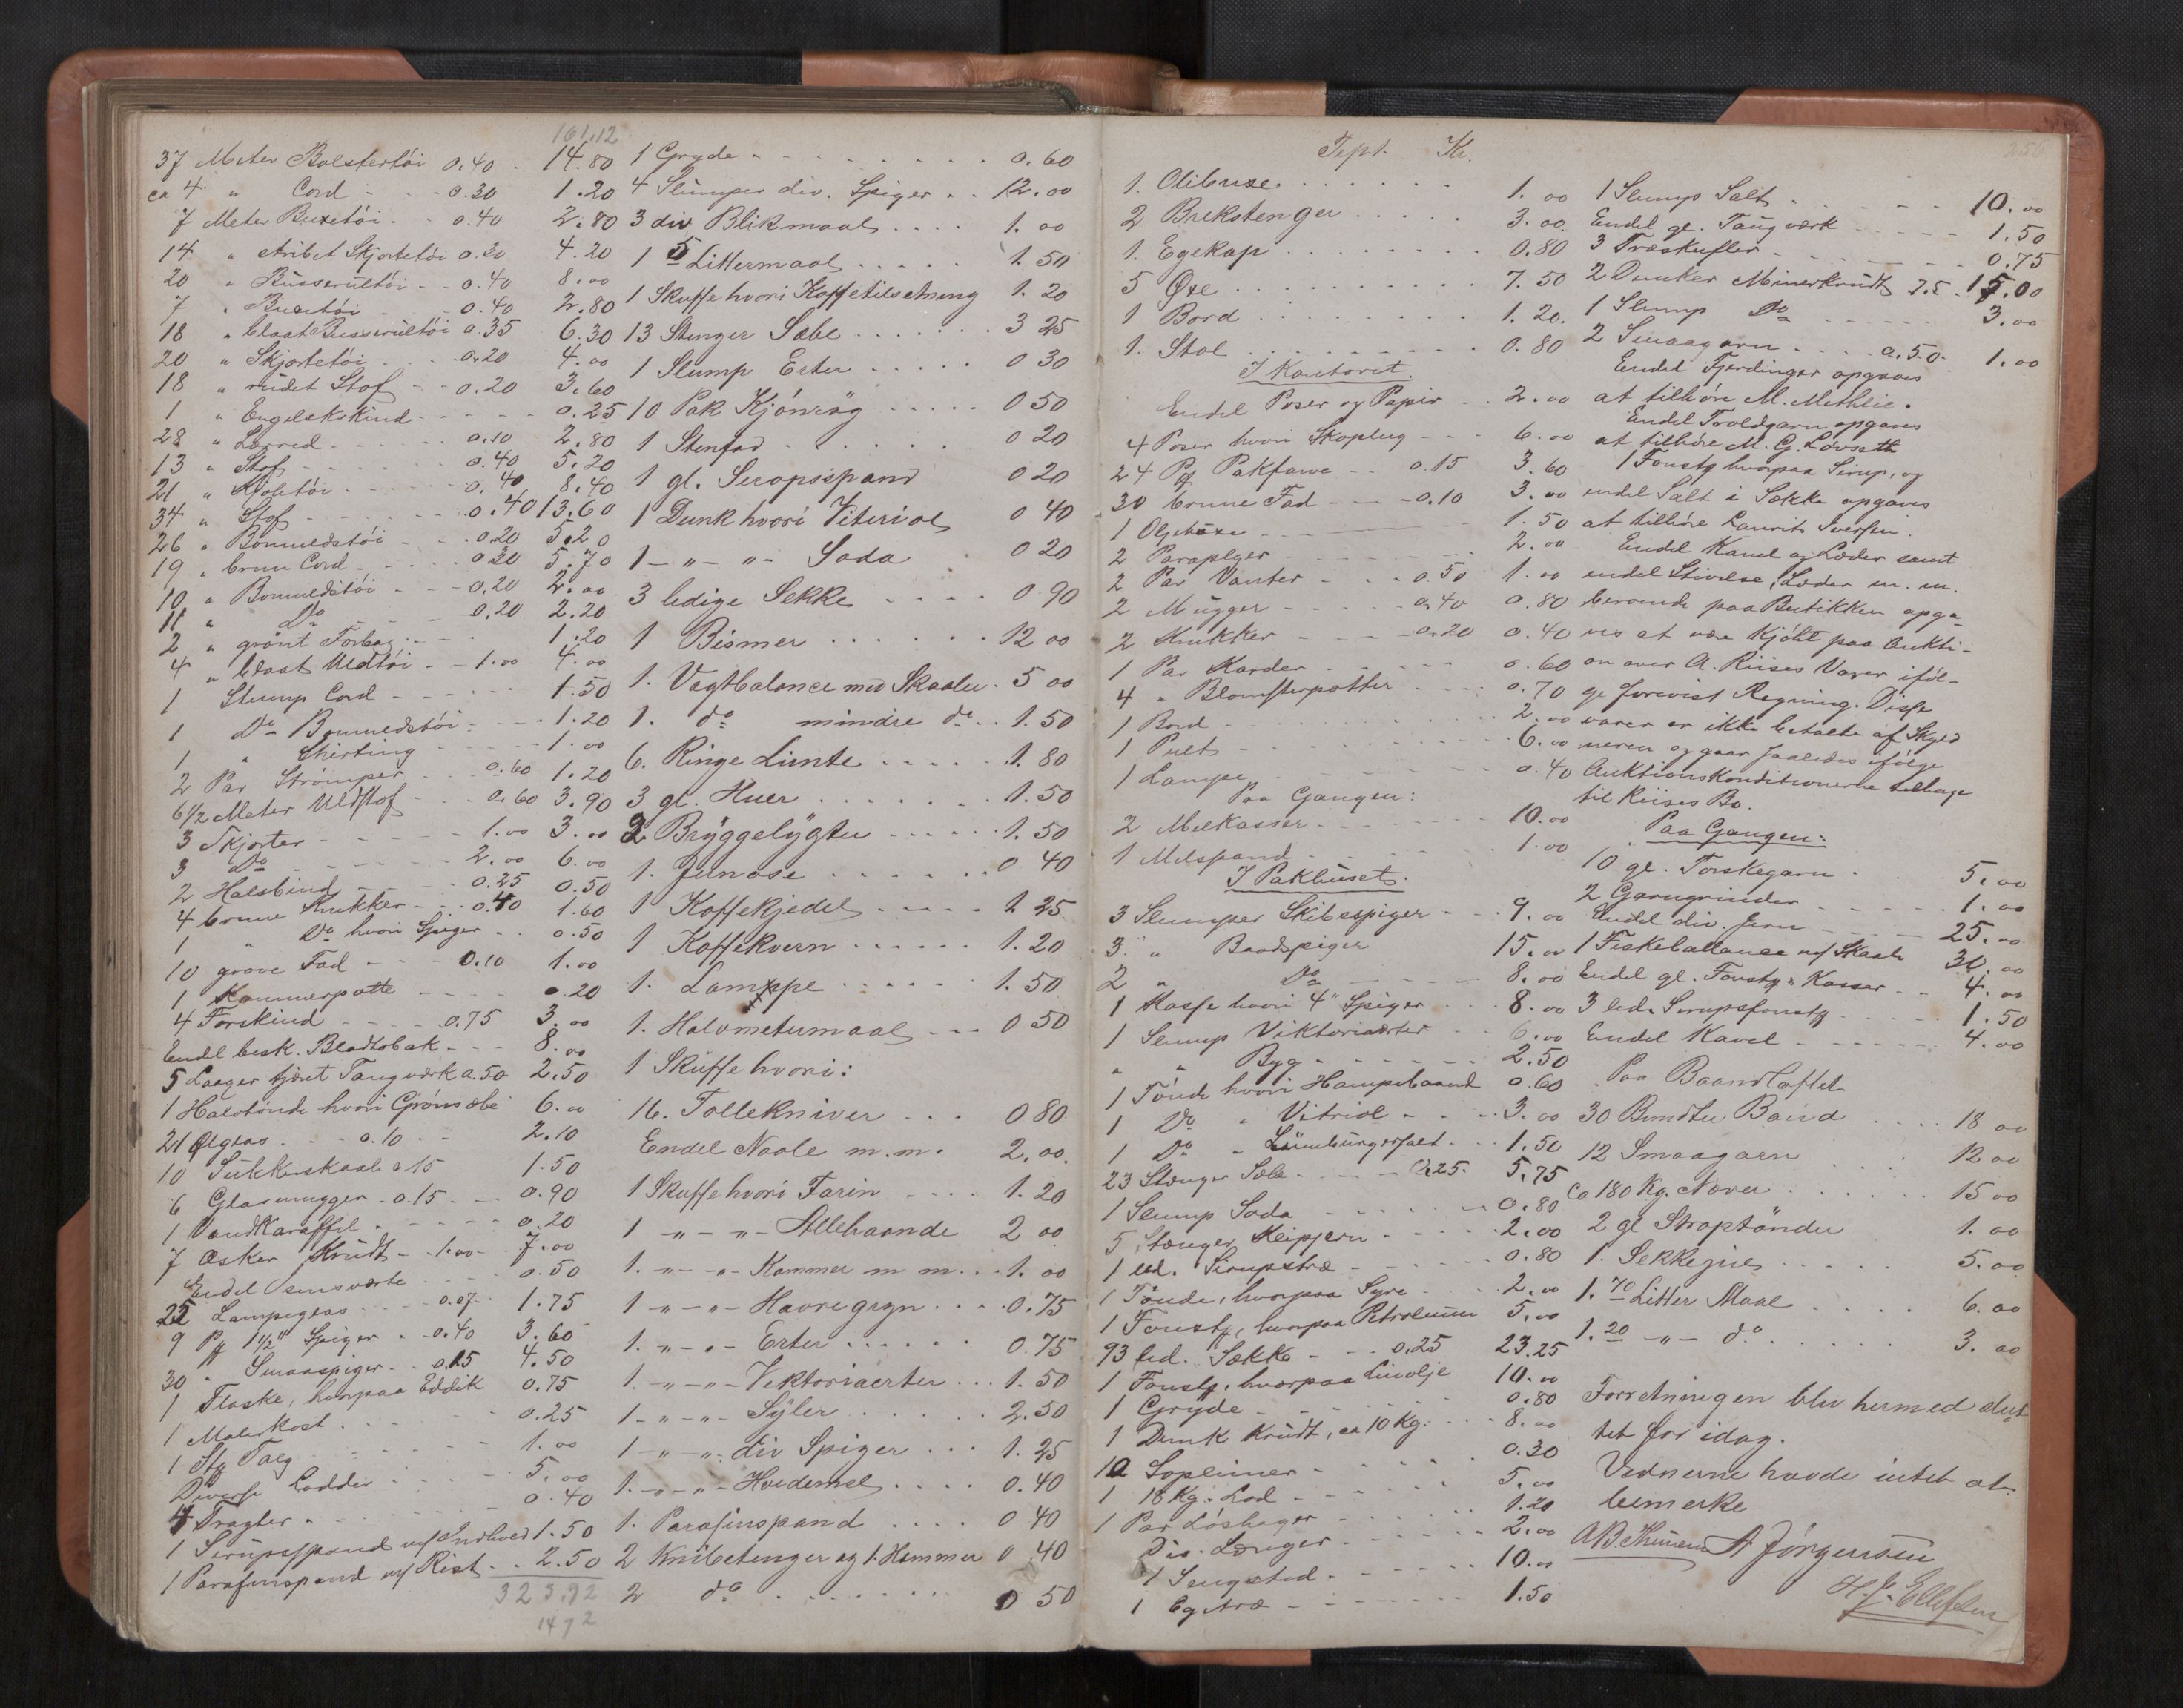 161.12
37 Meter Bolstertöi 0.40 - 14.80
ca 4 " Cord - - - 0.30 1.20
7 Meter Buxetöi - - 0.40 2.80
14 " stribet Skjortetöi 0.30 4.20
20 " Busserultöi - - 0.40 8.00
7 " Buxetöi - - 0.40 2.80
18 " blaat Busserultöi 0.35 6.30
20 " Skjortetöi - - 0.20 4.00
18 " rudet Stof - - 0.20 3.60
1 " Engelskskind - - - - 0.25
28 " Lærred - - - 0.10 2.80
13 " Stof - - - 0.40 5.20
21 " Kjoletöi - - - 0.40 8.40
34 " Stof - - - 0.40 13.60
26 " Bomuldstöi - - 0.20 5.20
19 " brun Cord - - - 0.30 5.70
10 " Bomuldstöi - - 0.20 2.00
11 " Do - - 0.20 2.20
2 " grönt Forhæg - - 1.20
4 " blaat Uldtöi - - 1.00 4.00
1 Slump Cord - - - - 1.50
1 Do Bomuldstöi - - - 1.20
1 " Shirting - - - 1.00
2 Par Strömper - - 0.60 1.20
6 1/2 Meter Uldstof - - 0.60 3.90
3 Skjorter - - - 1.00 3.00
3 Do - - - 2.00 6.00
2 Halsbind - - - 0.25 0.50
4 brune Krukker - - 0.40 1.60
1 " Do hvori Spiger - - 0.50
10 grove Fad - - - 0.10 1.00
1 Kammerpotte - - - - 0.20
4 Forskind - - - 0.75 3.00
Endel besk. Bladtobak - - - 8.00
5 Laager tjæret Taugværk a.50 2.50
1 Halvtönde hvori Grönsæbe 6.00
21 Ölglas - - - 0.10 - - 2.10
10 Sukkerskaale 0.15 1.50
6 Glasmugger - 0.15 - - 0.90
1 Vandkaraffel - - - - 0.20
7 Æsker Krudt - - 1.00 - 7.00
Endel 0.50
25 Lampeglas - - - 0.07 - 1.75
9 Pk 1 1/2" Spiger - - 0.40 3.60
30 " Smaaspiger - - 0.15 4.50
1 Flaske, hvorpaa Eddik 0.75
1 Malerkost - - - - 0.25
1 Stk Talg - - - - 1.00
Diverse Lodder - - - - 5.00
4 Tragter - - - - 0.40
1 Sirupsspand m/ Indhold 1.50
1 Parafinspand m/ Rist - - 2.50
323.92
1472
1 Gryde - - - - - - 0.60
4 Slumper div. Spiger - - 12.00
3 div Blikmaal - - - - 1.00
1 5 Littermaal - - - - 1.50
1 Skuffe hvori Kaffetilsetning 1.20
13 Stenger Sæbe - - - - 3 25
1 Slump Erter - - - - 0 30
10 Pak Kjönrög - - - - 0 50
1 Stenfad - - - - 0 20
1 gl. Siropsspand 0 20
1 Dunk hvori Viteriol 0 40
1 - " - " - Soda - 0 20
3 ledige Sekke - - - - 0 90
1 Bismer - - - - - 12 00
1. Vægtbalance med Skaaler - 5 00
1. do mindre do - - 1.50
6. Ringe Lunte - - - - 1.80
3 gl. Huer - - - - 1.50
2 Bryggelygter - - - - 1.50
1. Junose - - - - 0 40
1 Kaffekjedel - - - - 1 25
1 Kaffekvern - - - - 1.20
1. Lampe - - - - 1.50
1. Halvmetermaal - - - 0 50
1 Skuffe hvori:
16. Tollekniver - - - 0 80
Endel Naale m.m. 2.00.
1 Skuffe hvori Farin - - - 1.20
1 - " - " - Allehaande 2 00
1. - " - " - Kammer m m - - 1.00
1 - " - " - Havregryn - - - 0.75
1. - " - " - Erter - - - - 0.75
1. - " - " - Vektoriaerter - - - 1.50
1 - " - " - Syler - - - - 2.50
1 - " - " - div Spiger - - - 1.25
1. - " - " - Hvedemel - - - - 0.40
1. Parafinspand - - - - 0 40
2 Knibetenger og 1. Hammer 0.40
2 do - - - - 0 50
Tept. Kr.
1. Olibuxe - - - - - 1.00
2 Brekstenger - - - - 3.00
1. Egekap - - - - 0.80
5 Øxe - - - - 7.50
1 Bord - - - - 1.20.
1. Stol - - - - 0.80
I Kontoret.
Endel Poser og Papir - - 2.00
4 Poser hvori Skoplug - - - 6.00
24 Pk Pakfarve - - 0.15 3.60
30 brune Fad - - - 0.10 3.00
1 Oljebuxe - - - 1.50
2 Paraplyer - - - 2.00
2 Par Vanter - - - 0.50 1.00
2 Mugger - - - - 0.40 0.80
2 Krukker - - - - 0.20 0.40
1 Par Karder - - - - 0.60
4 " Blomsterpotter - - - - 0.70
1 Bord - - - - 2.00
1 Pult - - - - 6.00
1 Lampe - - - - 0.40
Paa Gangen:
2 Melkasser - - - - 10.00
1 Melspand - - - - 1.00
I Pakhuset.
3 Slumper Skibsspiger - - - 9.00
3. " Baadspiger 15.00
2 " Do - - - - 8.00
1 Kasse hvori 4" Spiger - - - 8.00
1 Slump Viktoriaerter - - 6.00
" " Byg - - - - 2.50
1 Tönde hvori Hampebaand 0.60
1 Do " Vitriol - - - 3.00
1 Do " Lüneburgersalt - - 1.50
23 Stænger Sæbe - - - - 0.25 5.75
1 Slump Soda - - - - 0.80
5 Stænger Keipjern - - - - 2.00
1 led. Sirupstræ - - - - 0.80
1 Tönde, hvorpaa Syre - - - 2.00
1 Foustg, hvorpaa Petroleum 5.00
93 led. Sække - - - 0.25 23.25
1 Foustg, hvorpaa Linolje 10.00
1 Gryde - - - - 0.80
1 Dunk Krudt, ca 10 Kg. - - - 8.00
10 - - - - 0.30
1 18 Kg. Lod - - - - 5.00
1 Par - - - - 1.20
Div. Længer - - - - 2.00
1 Sengsted - - - - 10.00
1 Egetræ - - - - 1.50
1 Slump Salt - - - - 10.00
Endel gl. Taugværk - - - - 1.50
3 Træskufler - - - - 0.75
2 Dunker Minerkrudt 7.5 - 15.00
1 Slump Do - - - - 3.00
2 Smaagarn - - - - 0.50 - 1.00
Endel Fjerdinger opgaves
at tilhöre M. Methlie.
Endel Troldgarn opgaves
at tilhöre M. G. Lövseth
1 Foustg hvorpaa Sirup, og
endel Salt i Sække opgaves
at tilhöre Laurits Iversen.
Endel Kanel og Læder samt
endel Stivelse, Læder m. m.
beroende paa Butikken opga-
ves at være Kjöbt paa Aukti-
on over A. Riises Varer iföl-
ge forevist Regning. Disse
varer er ikke betalte af Skyld
neren og gaar saaledes ifölge
Auktionskonditionerne tilbage
til Riises Bo.
Paa Gangen:
10 gl. Torskegarn - - 5.00
2 Garngrinder - - - - 1.00
Endel div. Jern - - - - 25.00
1 Fiskeballance m/ Skaale 30.00
Endel gl. Foustg & Kasser - - 4.00
3 led. Sirupsfoustg - - - - 1.50
Endel Kavel - - - - 4.00
Paa Baandloftet
30 Bundter Baand - - - - 18 00
12 Smaagarn 12 00
Ca 180 Kg. Næver - - - - 15 00
2 gl Straptönder 1.00
1. Sekkegie - - - - 5.00
1. 70 Litter Maal - - - - 6.00
1. 20 - " - do - - - - 3.00
Forretningen blev hermed slut
tet for idag.
Vidnerne havde intet at
bemerke
A Jörgensen
H. J. Ellefsen